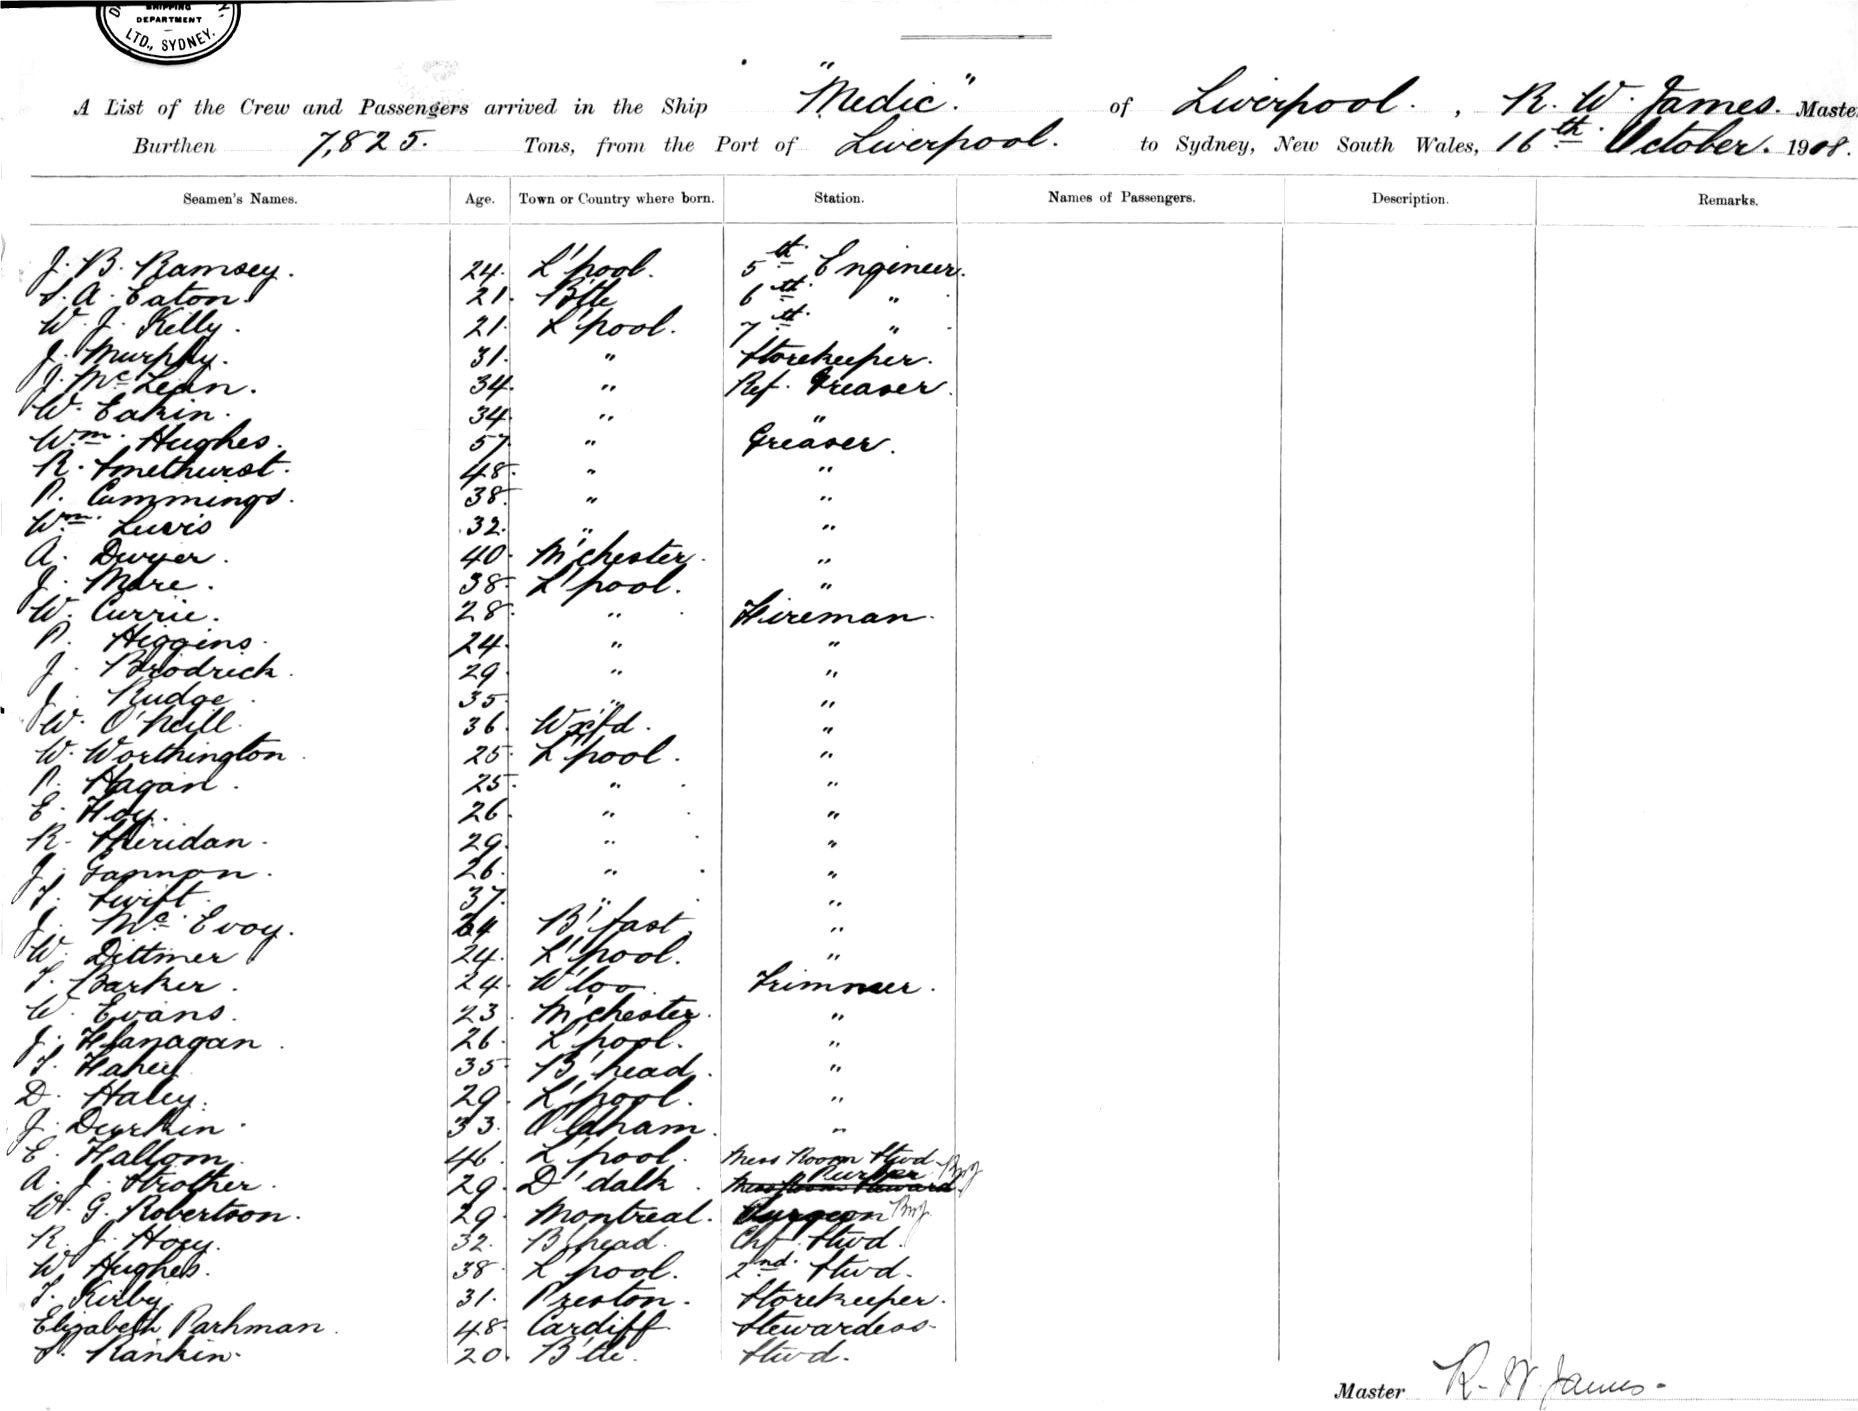 SHIPPING
DEPARTMENT
LTD., SYDNEY.
A List of the Crew and Passengers arrived in the Ship "Medic". of Liverpool. , R. W. James. Maste
Burthen 7,825. Tons, from the Port of Liverpool. to Sydney, New South Wales, 16th October. 1908.
Seamen's Names. Age. Town or Country where born. Station. Names of Passengers. Description. Remarks.
J. B. Ramsey. 24. L'pool. 5th Engineer.
S. A. Eaton. 21. B'tle 6th "
W. J. Kelly. 21. L'pool. 7th "
J. Murphy. 31. " Storekeeper.
J. McLean. 34. " Ref. Greaser.
W. Eakin. 34. " "
Wm. Hughes. 57. " Greaser.
R. Smethurst. 48. " "
P. Cummings. 38. " "
Wm. Lewis 32. " "
A. Dwyer. 40. M'chester. "
J. Mare. 38. L'pool. "
W. Currie. 28. " Fireman.
P. Higgins. 24. " "
J. Brodrick. 29. " "
J. Rudge. 35. " "
W. O'Neill. 36. Wxf'd. "
W. Worthington. 25. L'pool. "
P. Hagan. 25. " "
E. Hoy. 26. " "
R. Sheridan. 29. " "
J. Gannon. 26. " "
T. Swift. 37. " "
J. McEvoy. B'fast. "
W. Dittmer 24. L'pool. "
T. Barker. 24. W'loo. Trimmer.
W. Evans. 23. M'chester. "
J. Flanagan. 26. L'pool. "
T. Fahey 35. B'head. "
D. Haley. 29. L'pool. "
J. Durkin. 33. Oldham. "
E. Hallom. 46. L'pool. Mess Room Stwd.
A. J. Strother. 29. D'dalk. Purser
W. G. Robertson. 29. Montreal. Surgeon
R. J. Hoey. 32. B'head. Chf. Stwd.
W. Hughes. 38. L'pool. 2nd. Stwd.
T. Kirby 31. Preston. Storekeeper.
Elizabeth Parkman. 48. Cardiff Stewardess.
S. Rankin. 20. B'tle. Stwd.
Master R. W. James.